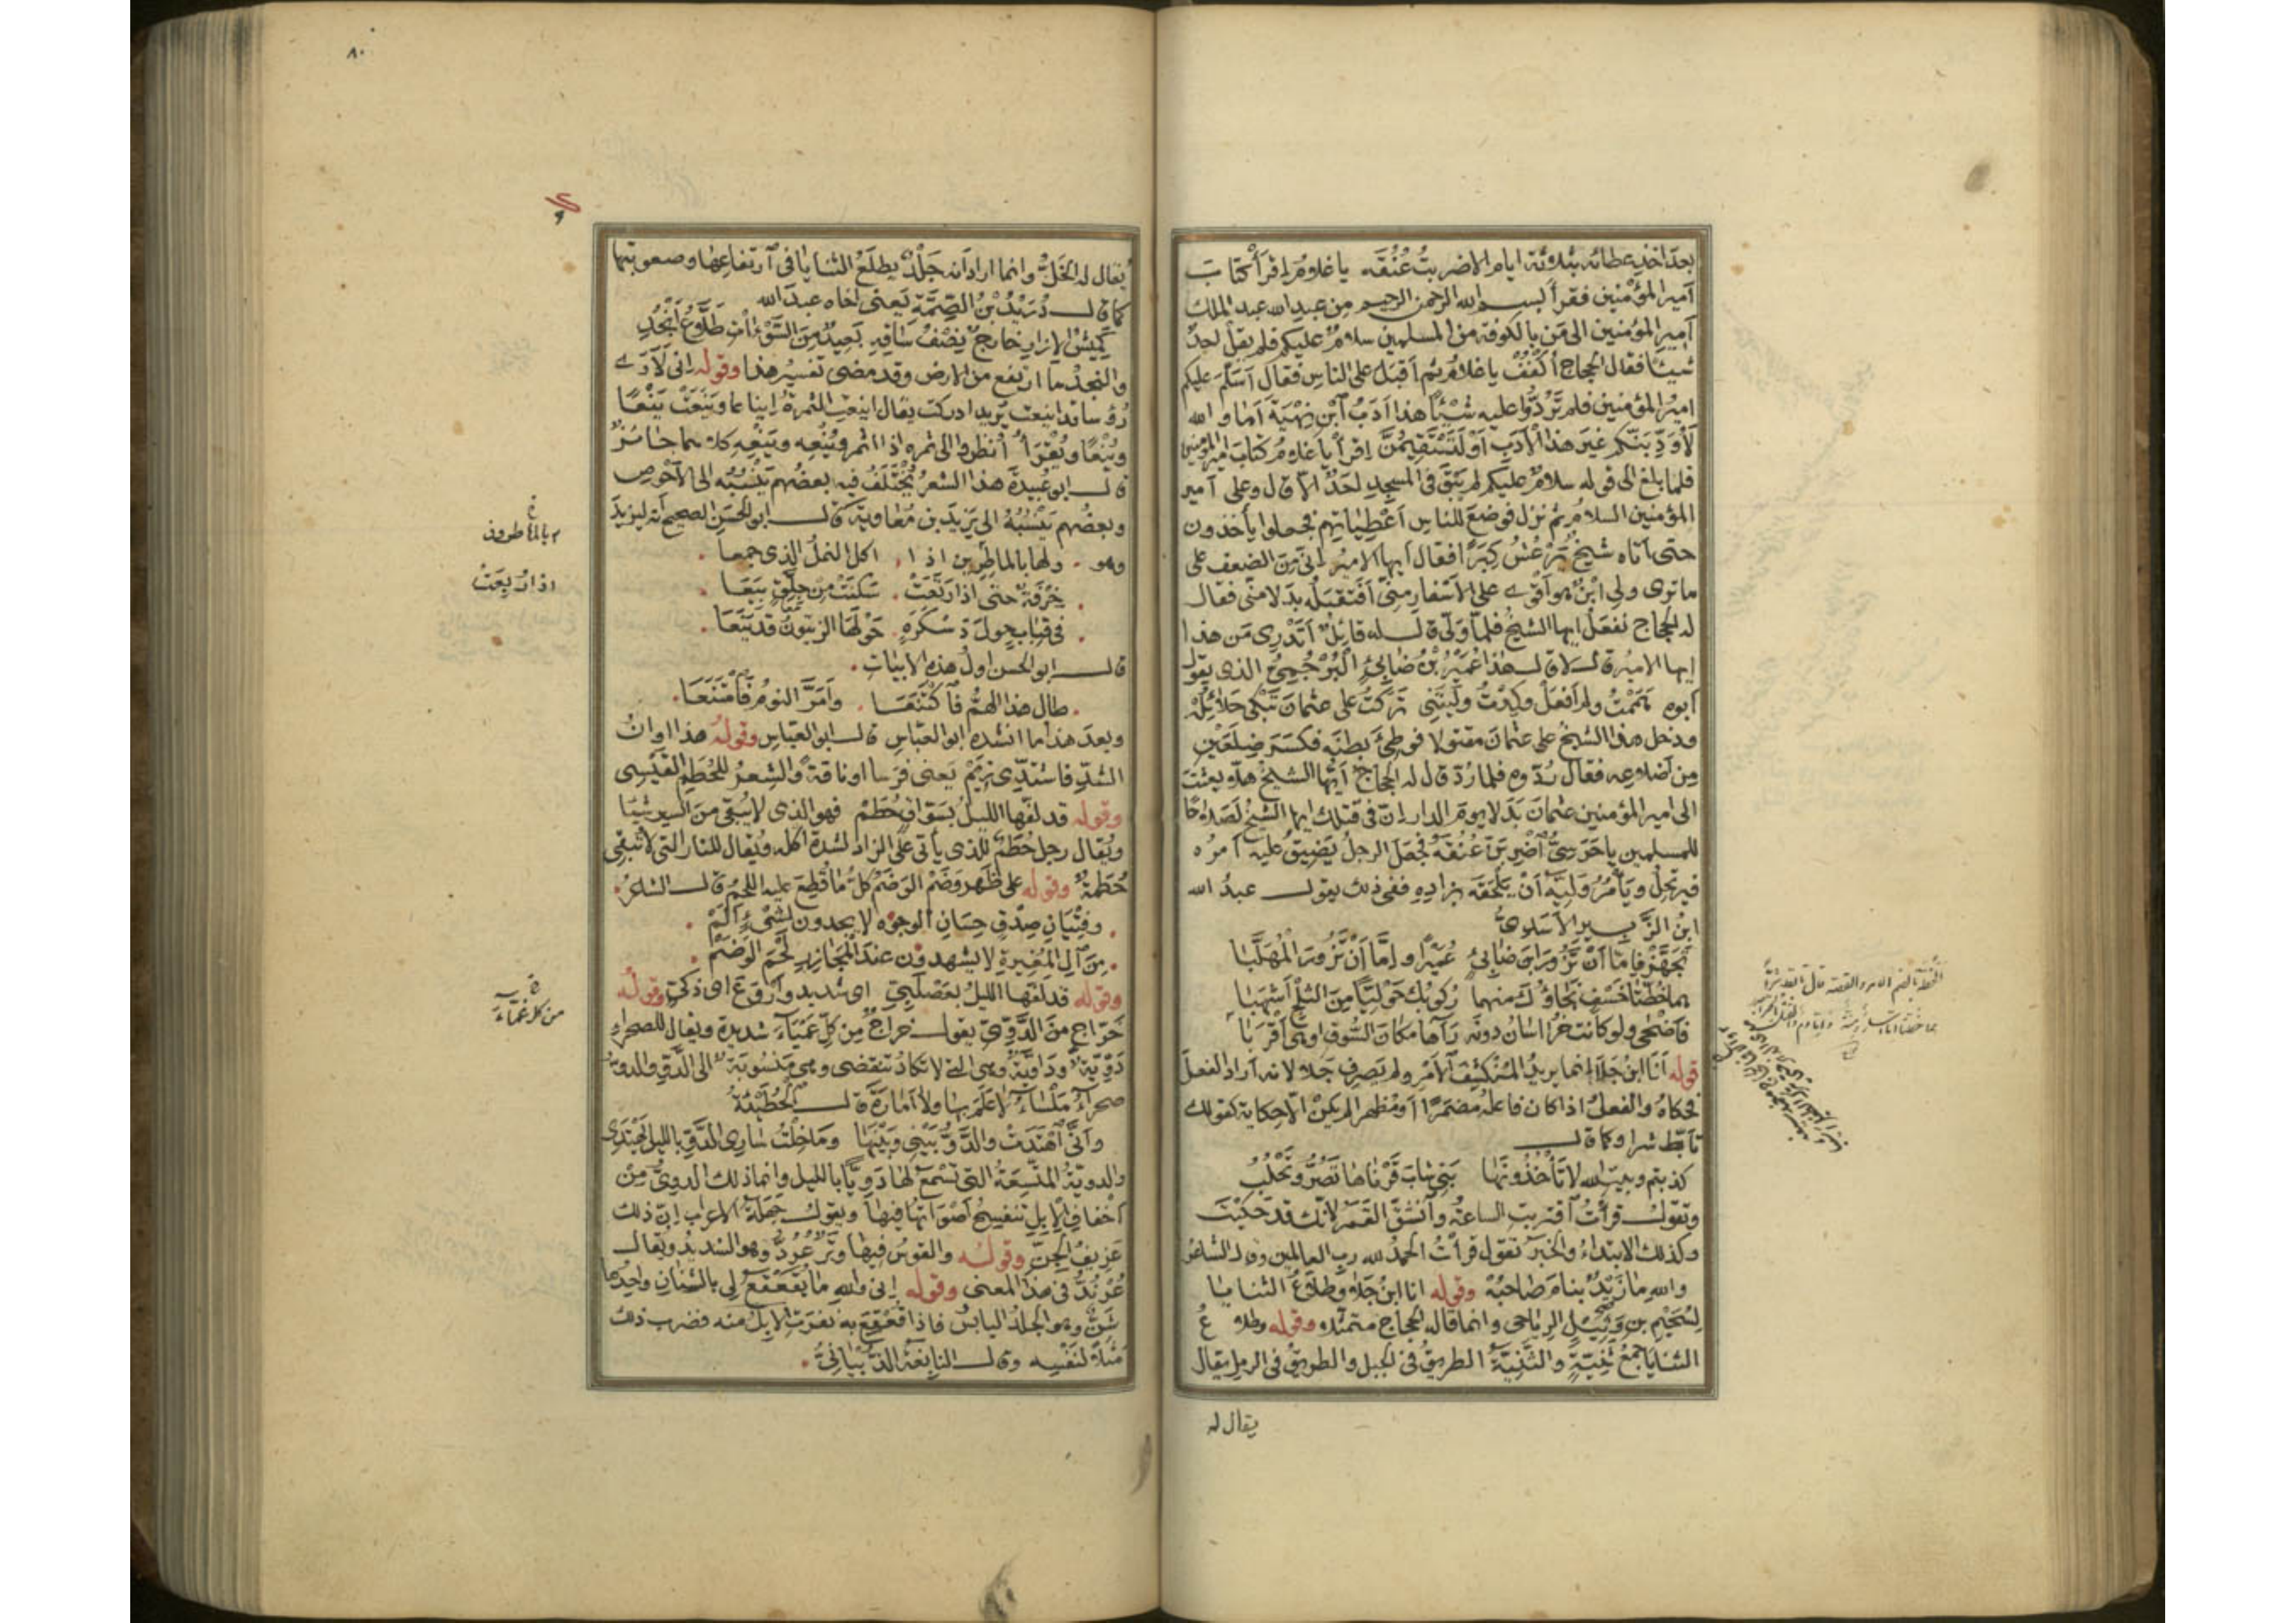 بعد اخذ عطائه بثلاثة ايام الا ضربتُ عُنُقَه يا غلام اِقرأ كتابَ
اَمير المؤمنين فقرأ بسم الله الرحمن الرحيم من عبد الله عبد الملك
اَمير المؤمنين الى مَن بالكوفة من المسلمين سلامٌ عليكم فلم يقل احدٌ
شيئا فقال الحجاج اُكْفُفْ يا غلام ثم اَقبَلَ على الناس فقال اَسَلَّمَ عليكم
اميرُ المؤمنين فلم تَرُدُّوا عليه شَيْئاً هذا اَدَبُ ابْنِ نِهْيَة اَمَا والله
لَاُؤَدِّبَنَّكم غيرَ هذا الاَدَبِ اَوْ لَتَسْتَقِيمُنَّ اِقرأ يا غلام كتابَ امير المؤمنين
فلما بلغ الى قوله سلامٌ عليكم لم يَبْقَ فى المسجد احدٌ الا قال وعلى امير
المؤمنين السلام ثم نزل فوضع للناس اَعْطِيَاتِهِم فجعلوا يأخذون
حتى اتاه شيخٌ يَرْعُشُ كِبَرًا فقال ايها الامير اِنّى مِنَ الضعف على
ما ترى ولى ابْنٌ هو اَقْوَى على الاَسْفارِ مِنّى اَفَتَقْبَلُه بَدَلا منّى فقال
له الحجاج نفعل ايها الشيخُ فلمّا وَلّى قال له قائِلٌ اَتَدْرِى مَن هذا
ايها الامير قال لا قال هذا عُمَيْرُ بْنُ ضَابِئٍ الْبُرْجُمِىُّ الذى يقول
اَبوه هَمَمْتُ ولم اَفْعَلْ وكِدْتُ ولَيْتَنِى تَرَكْتُ على عثمانَ تَبْكِى حَلَائِلُهْ
ودخل هذا الشيخُ على عثمانَ مقتولا فوَطِئَ بطنَه فكسَرَ ضِلَعَيْنِ
مِن اَضْلاعِه فقال رُدّوه فلما رُدّ قال له الحجاجُ اَيّها الشيخُ هلّا بعثتَ
الى امير المؤمنين عثمانَ بَدَلا يومَ الدار اِنّ فى قتلك ايها الشيخُ لَصَلاحًا
للمسلمين يا حَرَسِىُّ اضْرِبَنْ عُنُقَه فجعل الرجلُ يَضِيقُ عليه اَمرُه
فيرتحِلُ ويأمُرُ وَلِيَّه اَنْ يَلْحَقَه بزادِهِ ففى ذلك يقول عبدُ الله
ابنُ الزَّبِيرِ الاَسَدِىُّ
تَجَهَّزْ فإمّا اَنْ تَزُورَ ابنَ ضَابِئٍ عُمَيْرًا واِمَّا اَنْ تَزُورَ المُهَلَّبَا
هما خُطَّتَا خَسْفٍ نَجَاؤُكَ منهما رُكُوبُكَ حَوْلِيًّا مِنَ الثَّلْجِ اَشْهَبَا
فاَضْحَى ولو كانت خُرَاسَانُ دونَه رَآها مكانَ السُّوقِ او هى اَقْرَبَا
قوله اَنَا ابنُ جَلَا اِنما يريدُ المُنْكَشِفَ الاَمْرِ ولم يَصرِف جَلَا لانه اَراد الفعلَ
فحكاهُ والفعلُ اذا كان فاعلُه مُضْمَرًا او مُظْهَرا لم يكنْ الا حكاية كقولك
تاَبّطَ شرا وكما قال
كذبتم وبيتِ الله لا تَأْخُذُونَهَا بَنِى شَابَ قَرْنَاها تَصُرُّ وتَحْلُبُ
وتقول قرأتُ اقتربتِ الساعةُ وانشقّ القَمَرُ لانّك قد حَكَيْتَ
وكذلك الابتداءُ والخبرُ تقول قرأتُ الحمدُ لله ربِ العالمين وقال الشاعر
والله ما زَيْدٌ بنامَ صَاحِبُهْ وقوله انا ابنُ جَلَا وطَلَّاعُ الثنايا
لِسُحَيْم بن وَثِيْلٍ الرياحى وانما قاله الحجاج متمثّلا وقوله وطلاعُ
الثنايا جمعُ ثَنِيّةٍ والثَّنِيَّةُ الطريقُ فى الجبل والطريقُ فى الرمل يقال
يقال له
٨٠
يُقال له الخَلُّ وانما اراد انه جَلْدٌ يطلَعُ الثنايا فى ارتفاعها وصعوبتها
كما قال دُرَيْدُ بْنُ الصِّمَّةِ يَعنى اخاه عبدَ الله
كَمِيْشُ الإزارِ خارِجٌ نِصْفُ سَاقِهِ بَعِيدٌ مِنَ السَّوْآتِ طَلَّاعُ اَنْجُدِ
والنجدُ ما ارتفع من الارض وقد مضى تفسيرُ هذا وقوله انى لاَرَى
رُؤُسا قد اينعت يريد ادركت يقال اينعتِ الثمرةُ اِيناعا ويَنَعَتْ يَنْعًا
ويُنْعًا ويُقْرَأُ انظروا الى ثمره اذا اثمر ويُنْعِه ويَنْعِه كلاهما جائزٌ
قال ابو عُبيدة هذا الشعرُ يُخْتَلَفُ فيه بعضُهم يَنْسُبُه الى الاَحْوص
وبعضُهم يَنْسُبُهُ الى يَزيدَ بن مُعَاوية قال ابو الحَسَن الصحيح انه ليزيدَ
وهو ولها بالماطِرِين اذا اكل النملُ الذى جمعا
خُرْفَةٌ حتى اذا ارتَبَعَتْ سَكنَتْ مِن جِلّقٍ بِيَعَا
فى قِبَابٍ حولَ دَسْكَرَهٍ حَوْلَها الزيتونُ قد يَنَعَا
قال ابو الحسن اولُ هذه الابيات
طال هذا الهمُّ فاكْتَنَعَا واَمَرَّ النومُ فامْتَنَعَا
وبعد هذا ما انشده ابو العبّاس قال ابو العباس وقوله هذا اوانُ
الشدِّ فاشتدّى زِيَمْ يَعنى فرَسا او ناقةً والشعرُ للحُطَمِ القَيْسِى
وقوله قد لفّها الليلُ بسَوّاقٍ حُطَمْ فهو الذى لا يُبقى مِنَ السير شيئا
ويُقال رجل حُطَمٌ للذى يأتى على الزاد لشدة اكله ويُقال للنار التى لا تُبقى
حُطَمَةٌ وقوله على ظَهرِ وَضَمْ الوَضَمُ كلُّ ما قُطِعَ عليه اللحمُ قال الشاعرُ
وفِتْيَانِ صِدْقٍ حِسَانِ الوجُوه لا يجدون لشَىْءٍ اَلَمْ
مِن آلِ المُغِيرةِ لا يشهدون عندَ المَجَازِرِ لَحْمَ الوَضَمْ
وقوله قد لَفّها الليلُ بعَصْلَبِىّ اى شديد واَرْوَعَ اى ذكىّ وقوله
خَرَّاجٍ مِنَ الدَّوِّىِّ يقول خراجٌ مِن كلّ غَمْيَآءَ شديدة ويقال للصحراء
دَوِّيَّةٌ ودَاوِيَّةٌ وهى التى لا تكادُ تنقضى وهى مَنْسُوبَةٌ الى الدَّوِّ والدوّ
صحراءُ مَلْسَاءُ لا عَلَمَ بها ولا اَمارَةَ قال الحُطَيْئَةُ
وَاَنَّى اهْتَدَتْ والدَّوُّ بَيْنِى وَبَيْنَهَا وَمَا خِلْتُ سَارِى الدَّوِّ بالليل يَهْتَدِى
والدويّةُ المتّسِعَةُ التى تَسْمَعُ لها دَوِيًّا بالليل وانما ذلك الدوىُّ مِن
اَخفافِ الاِبِلِ تنفسِحُ اَصْوَاتُها فيها ويقول جهَلَةُ الاعراب انّ ذلك
عَزِيفُ الجِنِّ وقوله والقوسُ فيها وَتَرٌ عُرُدُّ وهو الشديدُ ويقال
عُرُنْدٌ فى هذا المعنى وقوله اِنى والله مَا يُقَعْقَعُ لى بالشنان واحدُها
شَنٌّ وهو الجلدُ اليابسُ فاذا قُعْقِعَ به نفَرَتِ الاِبلُ منه فضرب ذلك
مَثَلا لنَفْسِه وقال النابغةُ الذُّبْيَانِىُّ
اذا ارتبعتْ
من كل غمّآء